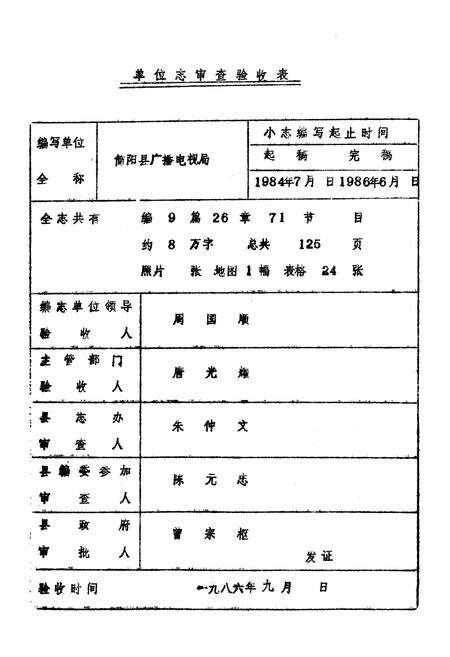 单位志审查验收表
编写单位
全称
简阳县广播电视局
小志编写起止时间
起稿 完稿
1984年7月 日 1986年6月 日
全志共有 编 9 篇 26 章 71 节 目
约 8 万字 总共 125 页
照片 张 地图 1 幅 表格 24 张
编志单位领导
验收人
周国顺
主管部门
验收人
唐光耀
县志办
审查人
朱仲文
县编委参加
审查人
陈元忠
县政府
审批人
曾宗枢
发证
验收时间 一九八六年九月 日